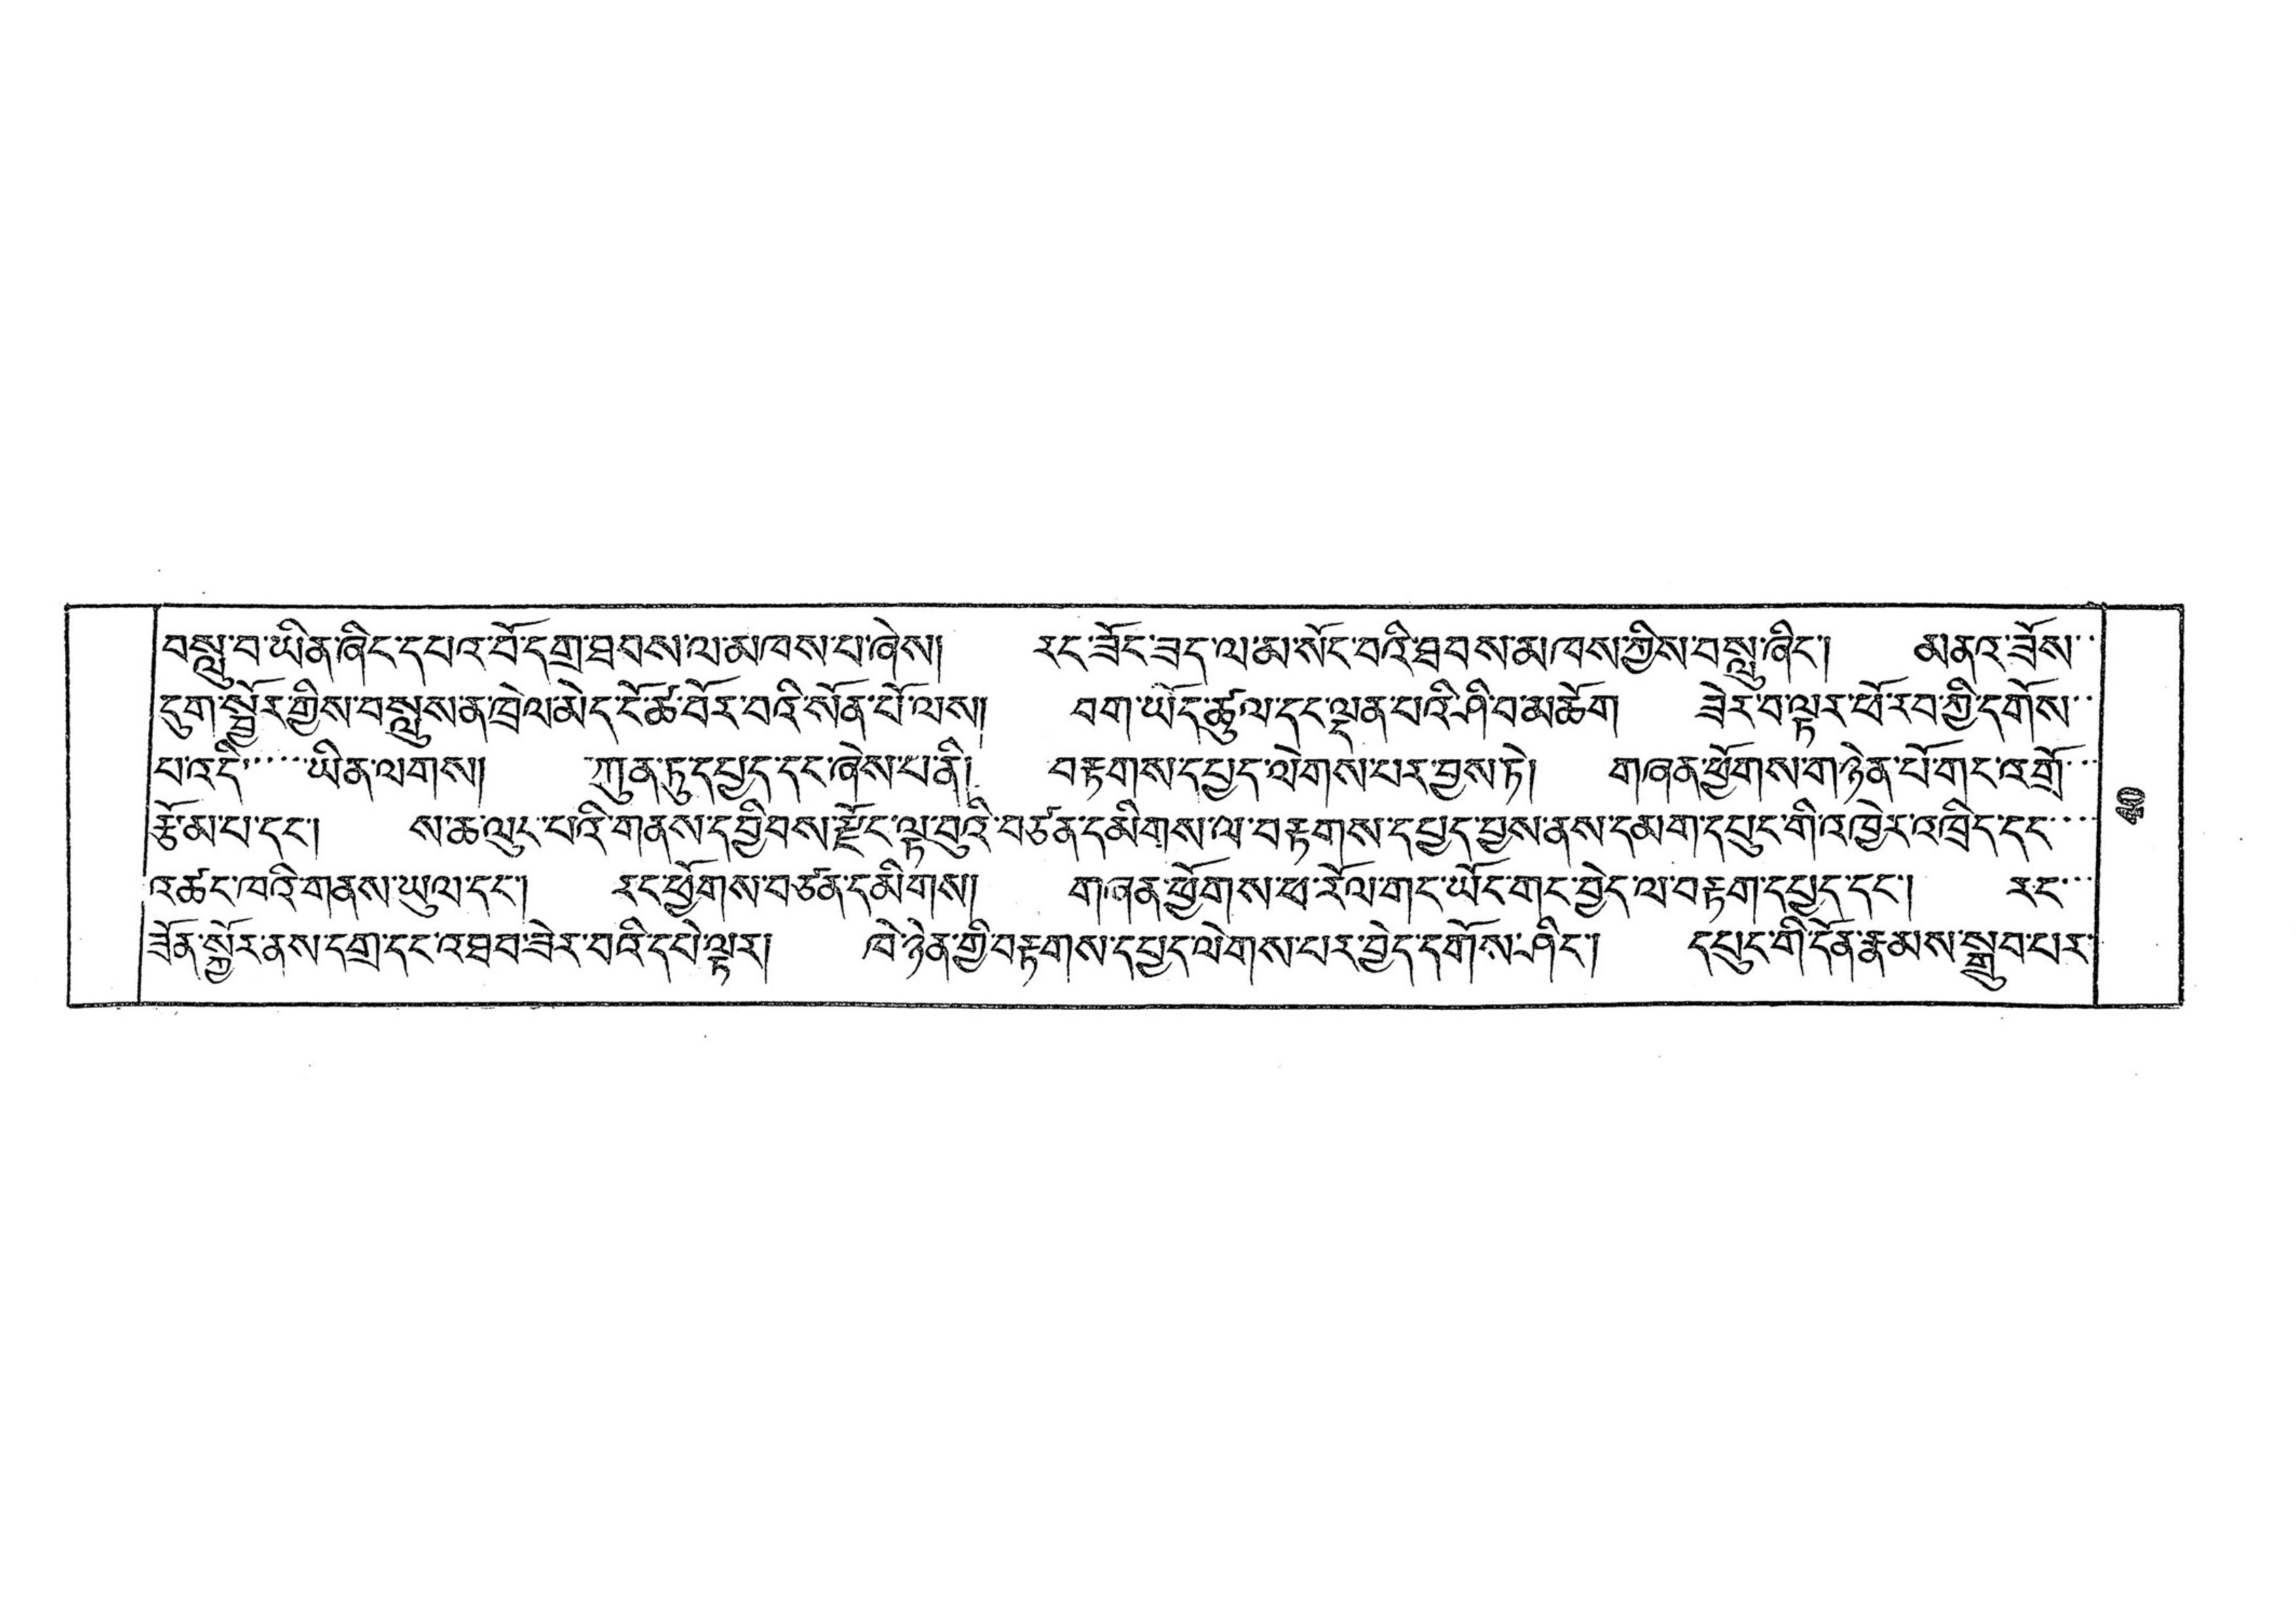 བསླུ་བ་ཡིན་ཞིང་དཔའ་བོ་དགྲ་ཐབས་ལ་མཁས་པ་ཞེས། རང་ཟོང་ཟད་ལ་མ་སོང་བའི་ཐབས་མཁས་ཀྱིས་བསླུ་ཞིང་། མནའ་ཟོས་
དུག་སྦྱོར་གྱིས་བསླུས་ན་ཁྲེལ་མེད་ངོ་ཚ་བོར་བའི་སོན་པོ་ལས། བག་ཡོད་ཚུལ་དང་ལྡན་པའི་ཤི་བ་མཆོག ཟེར་བ་ལྟར་ཕོ་རབ་ཀྱི་དགོས་
པ་འདི་་་་་་ཡིན་ལགས། ཀུན་ཏུ་དཔྱད་དང་ཞེས་པ་ནི། བརྟགས་དཔྱད་ལེགས་པར་བྱས་ཏེ། གཞན་ཕྱོགས་གཉེན་པོ་གང་འགྲོ་
རྩོམ་པ་དང་། ས་ཆ་ལུང་པའི་གནས་དབྱིབས་རྫོང་ལྟ་བུའི་བཙན་དམིགས་ལ་བརྟགས་དཔྱད་བྱས་ནས་དམག་དཔུང་གི་འཁྱེར་འཁྲིད་དང་
འཚང་ཁའི་གནས་ཡུལ་དང་། རང་ཕྱོགས་བཙན་དམིགས། གཞན་ཕྱོགས་ཕ་རོལ་གང་ཡོང་གང་བྱེད་ལ་བརྟག་དཔྱད་དང་། རང་
ཟོན་སྐྱོར་ནས་དགྲ་དང་འཐབ་ཟེར་བའི་དཔེ་ལྟར། ཁེ་ཉེན་གྱི་བརྟགས་དཔྱད་ལེགས་པར་བྱེད་དགོས་ཤིང་། དཔུང་གི་དོན་རྣམས་སྒྲུབ་པར་